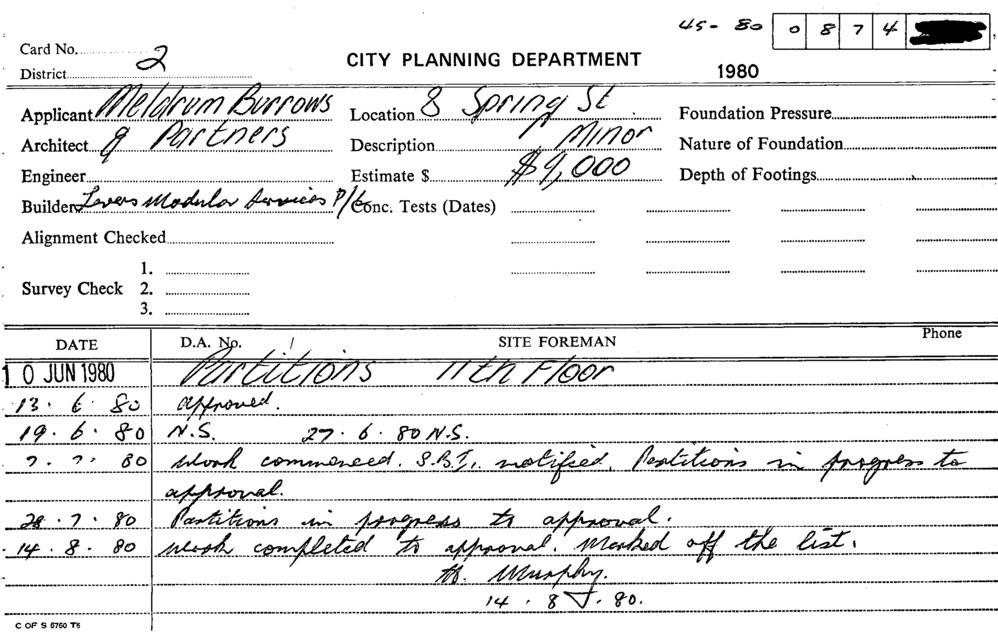 45- 80 0 8 7 4
Card No. 2
CITY PLANNING DEPARTMENT
District
1980
Applicant Meldrum Burrows Location 8 Spring St Foundation Pressure
Architect & Partners Description Minor Nature of Foundation
Engineer Estimate $ $9,000 Depth of Footings
Builder Levers Modular Services P/L Conc. Tests (Dates)
Alignment Checked
1.
Survey Check 2.
3.
DATE D.A. No. SITE FOREMAN Phone
10 JUN 1980 Partitions 11th Floor
13. 6. 80 approved.
19. 6. 80 N.S. 27. 6. 80 N.S.
7. 7. 80 Work commenced. S.B.I. notified. Partitions in progress to
approval.
28. 7. 80 Partitions in progress to approval.
14. 8. 80 Work completed to approval. Marked off the list.
Murphy.
14. 8. 80.
C OF S 6760 T6